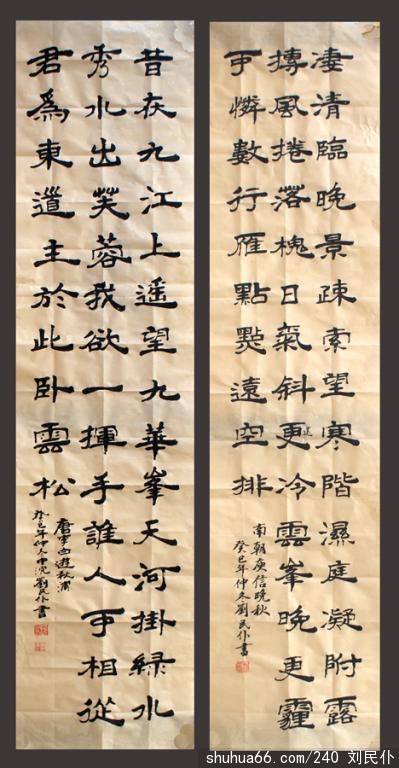 淒清臨晚景疎索望寒階濕庭凝附露
摶風捲落槐日氣斜更冷雲峯晚更霾
可憐數行雁點點遠空排
南朝庾信晚秋
癸巳年仲冬劉民仆書
昔在九江上遥望九華峯天河掛緑水
秀水出芙蓉我欲一揮手誰人可相從
君為東道主於此卧雲松
唐李白遊秋浦
癸巳年仲冬中浣劉民仆書
shuhua66.com/240 刘民仆